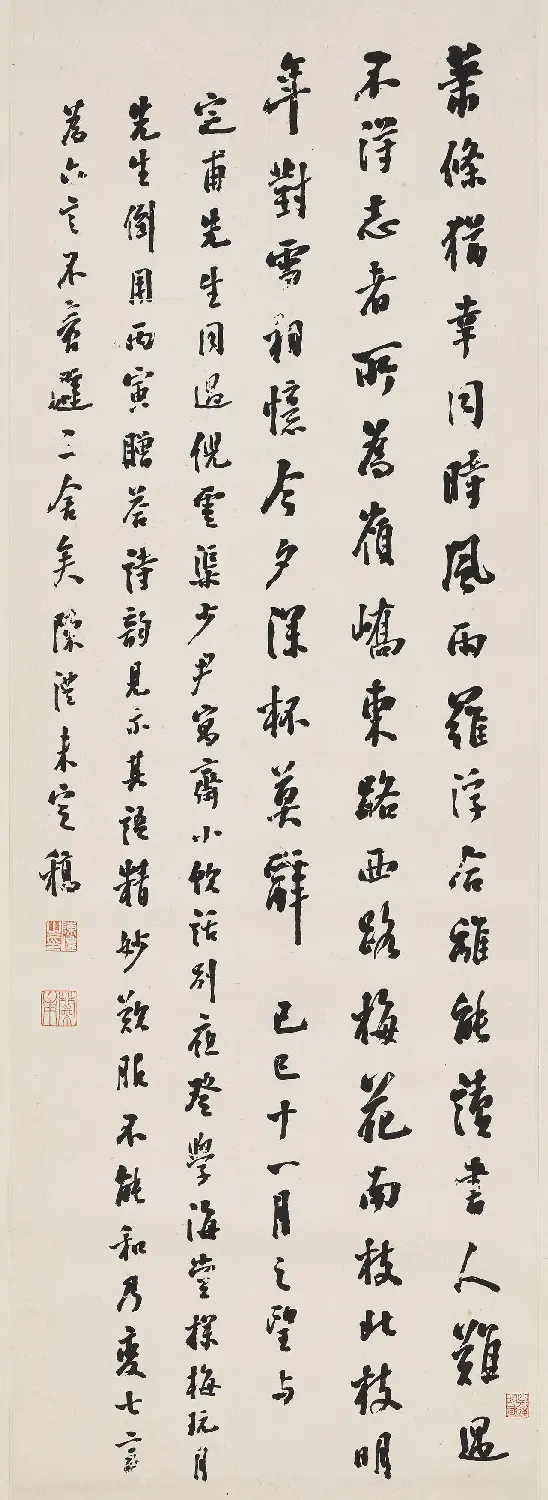 蕭條猶幸同時風雨羅浮合離能讀書人難遇
不得志者所為嶺嶠東路西路梅花南枝北枝明
年對雪相憶今夕深杯莫辭 己巳十一月之望与
定甫先生同過倪雲渠少尹寓齋小飲話別夜登學海堂探梅玩月
先生倒用丙寅贈答詩韵見示其語精妙歎服不能和乃變七言
為六言不啻避三舍矣陳澧未定稿